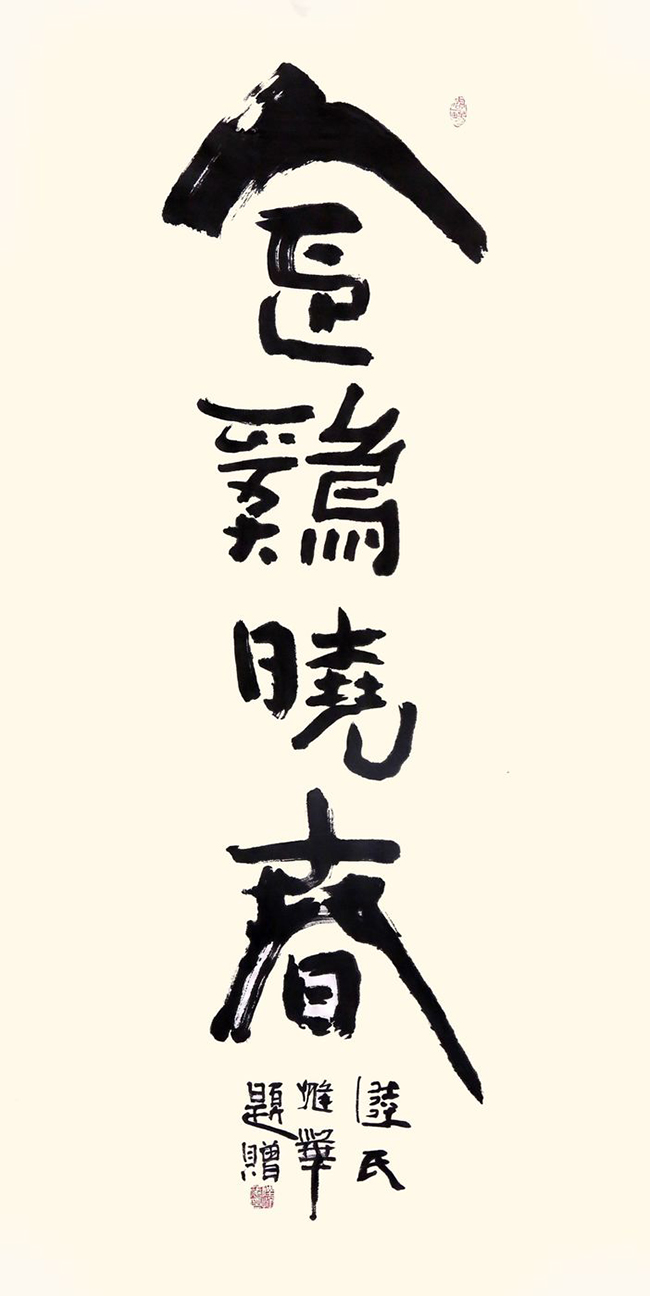 金鷄曉春
陸氏
華
題贈